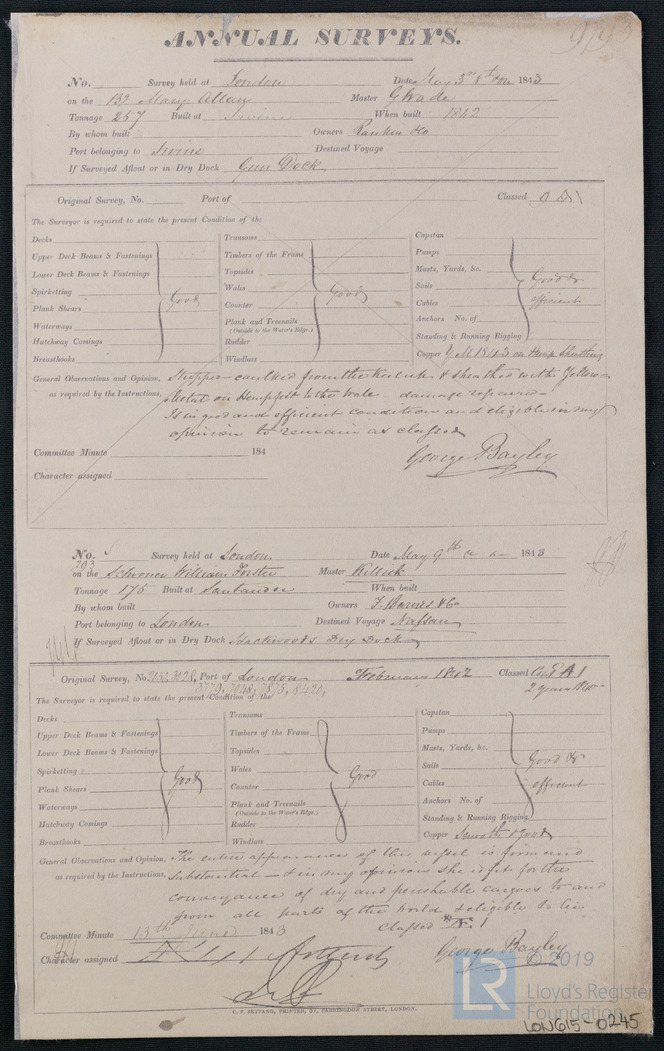 ANNUAL SURVEYS.
No. Survey held at London Date May 3rd 8th 1843
on the Bg Mary Allan Master G Wade
Tonnage 257 Built at Irvine When built 1842
By whom built Owners Rankin &Co
Port belonging to Irvine Destined Voyage
If Surveyed Afloat or in Dry Dock Gun Dock
Original Survey, No. Port of Classed A1
The Surveyor is required to state the present Condition of the
Decks
Upper Deck Beams & Fastenings
Lower Deck Beams & Fastenings
Spirketting
Plank Shears
Waterways
Hatchway Comings
Breasthooks
Good
Transoms
Timbers of the Frame
Topsides
Wales
Counter
Plank and Treenails
(Outside to the Water's Edge.)
Rudder
Windlass
Good
Capstan
Pumps
Masts, Yards, &c.
Sails
Cables
Anchors No. of
Standing & Running Rigging
Good &
efficient
Copper Y. M. 1843 on Hemp Sheathing
General Observations and Opinion, Stripped - caulked from the Keel up & sheathed with Yellow
as required by the Instructions, Metal on Hemp felt to the Wale - damage repaired -
Is in good and efficient condition and eligible in my
opinion to remain as classed
Committee Minute 184
George Bayley
Character assigned
No. Survey held at London Date May 9th 1843
203
on the Schooner William Forster Master Killick
Tonnage 175 Built at Santander When built
By whom built Owners F. Barnes & Co
Port belonging to London Destined Voyage Nassau
If Surveyed Afloat or in Dry Dock Hackwoods Dry Dock
Original Survey, No. Port of London February 1842 Classed A1
3779, 7048, 7875, 8420,
2 years
The Surveyor is required to state the present Condition of the
Decks
Upper Deck Beams & Fastenings
Lower Deck Beams & Fastenings
Spirketting
Plank Shears
Waterways
Hatchway Comings
Breasthooks
Good
Transoms
Timbers of the Frame
Topsides
Wales
Counter
Plank and Treenails
(Outside to the Water's Edge.)
Rudder
Windlass
Good
Capstan
Pumps
Masts, Yards, &c.
Sails
Cables
Anchors No. of
Standing & Running Rigging
Good &
efficient
Copper Smooth & Good
General Observations and Opinion, The entire appearance of this vessel is firm and
as required by the Instructions, substantial - & in my opinion she is fit for the
conveyance of dry and perishable cargoes to and
from all parts of the World & eligible to be
classed Æ 1
Committee Minute 13th June 1843
George Bayley
Character assigned Æ 1
C. F. SEYFANG, PRINTER, 57, FARRINGDON STREET, LONDON.
LR © 2019
Lloyd's Register
Foundation
LON615-0245